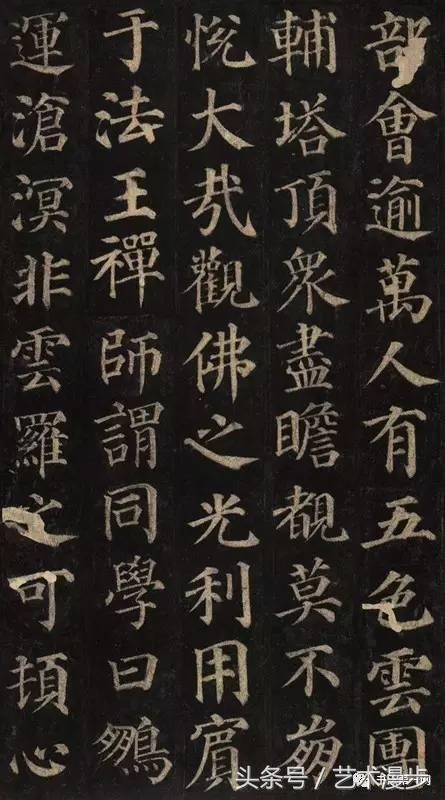 部會逾萬人有五色雲團
輔塔頂衆盡瞻覩莫不崩
悅大哉觀佛之光利用賓
于法王禪師謂同學曰鵬
運滄溟非雲羅之可頓心
头条号 / 艺术漫步